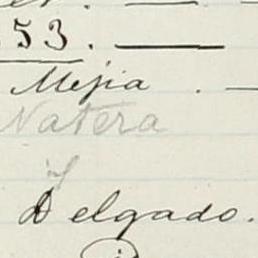 53. —
Mejia . —
Natera
y
Delgado.